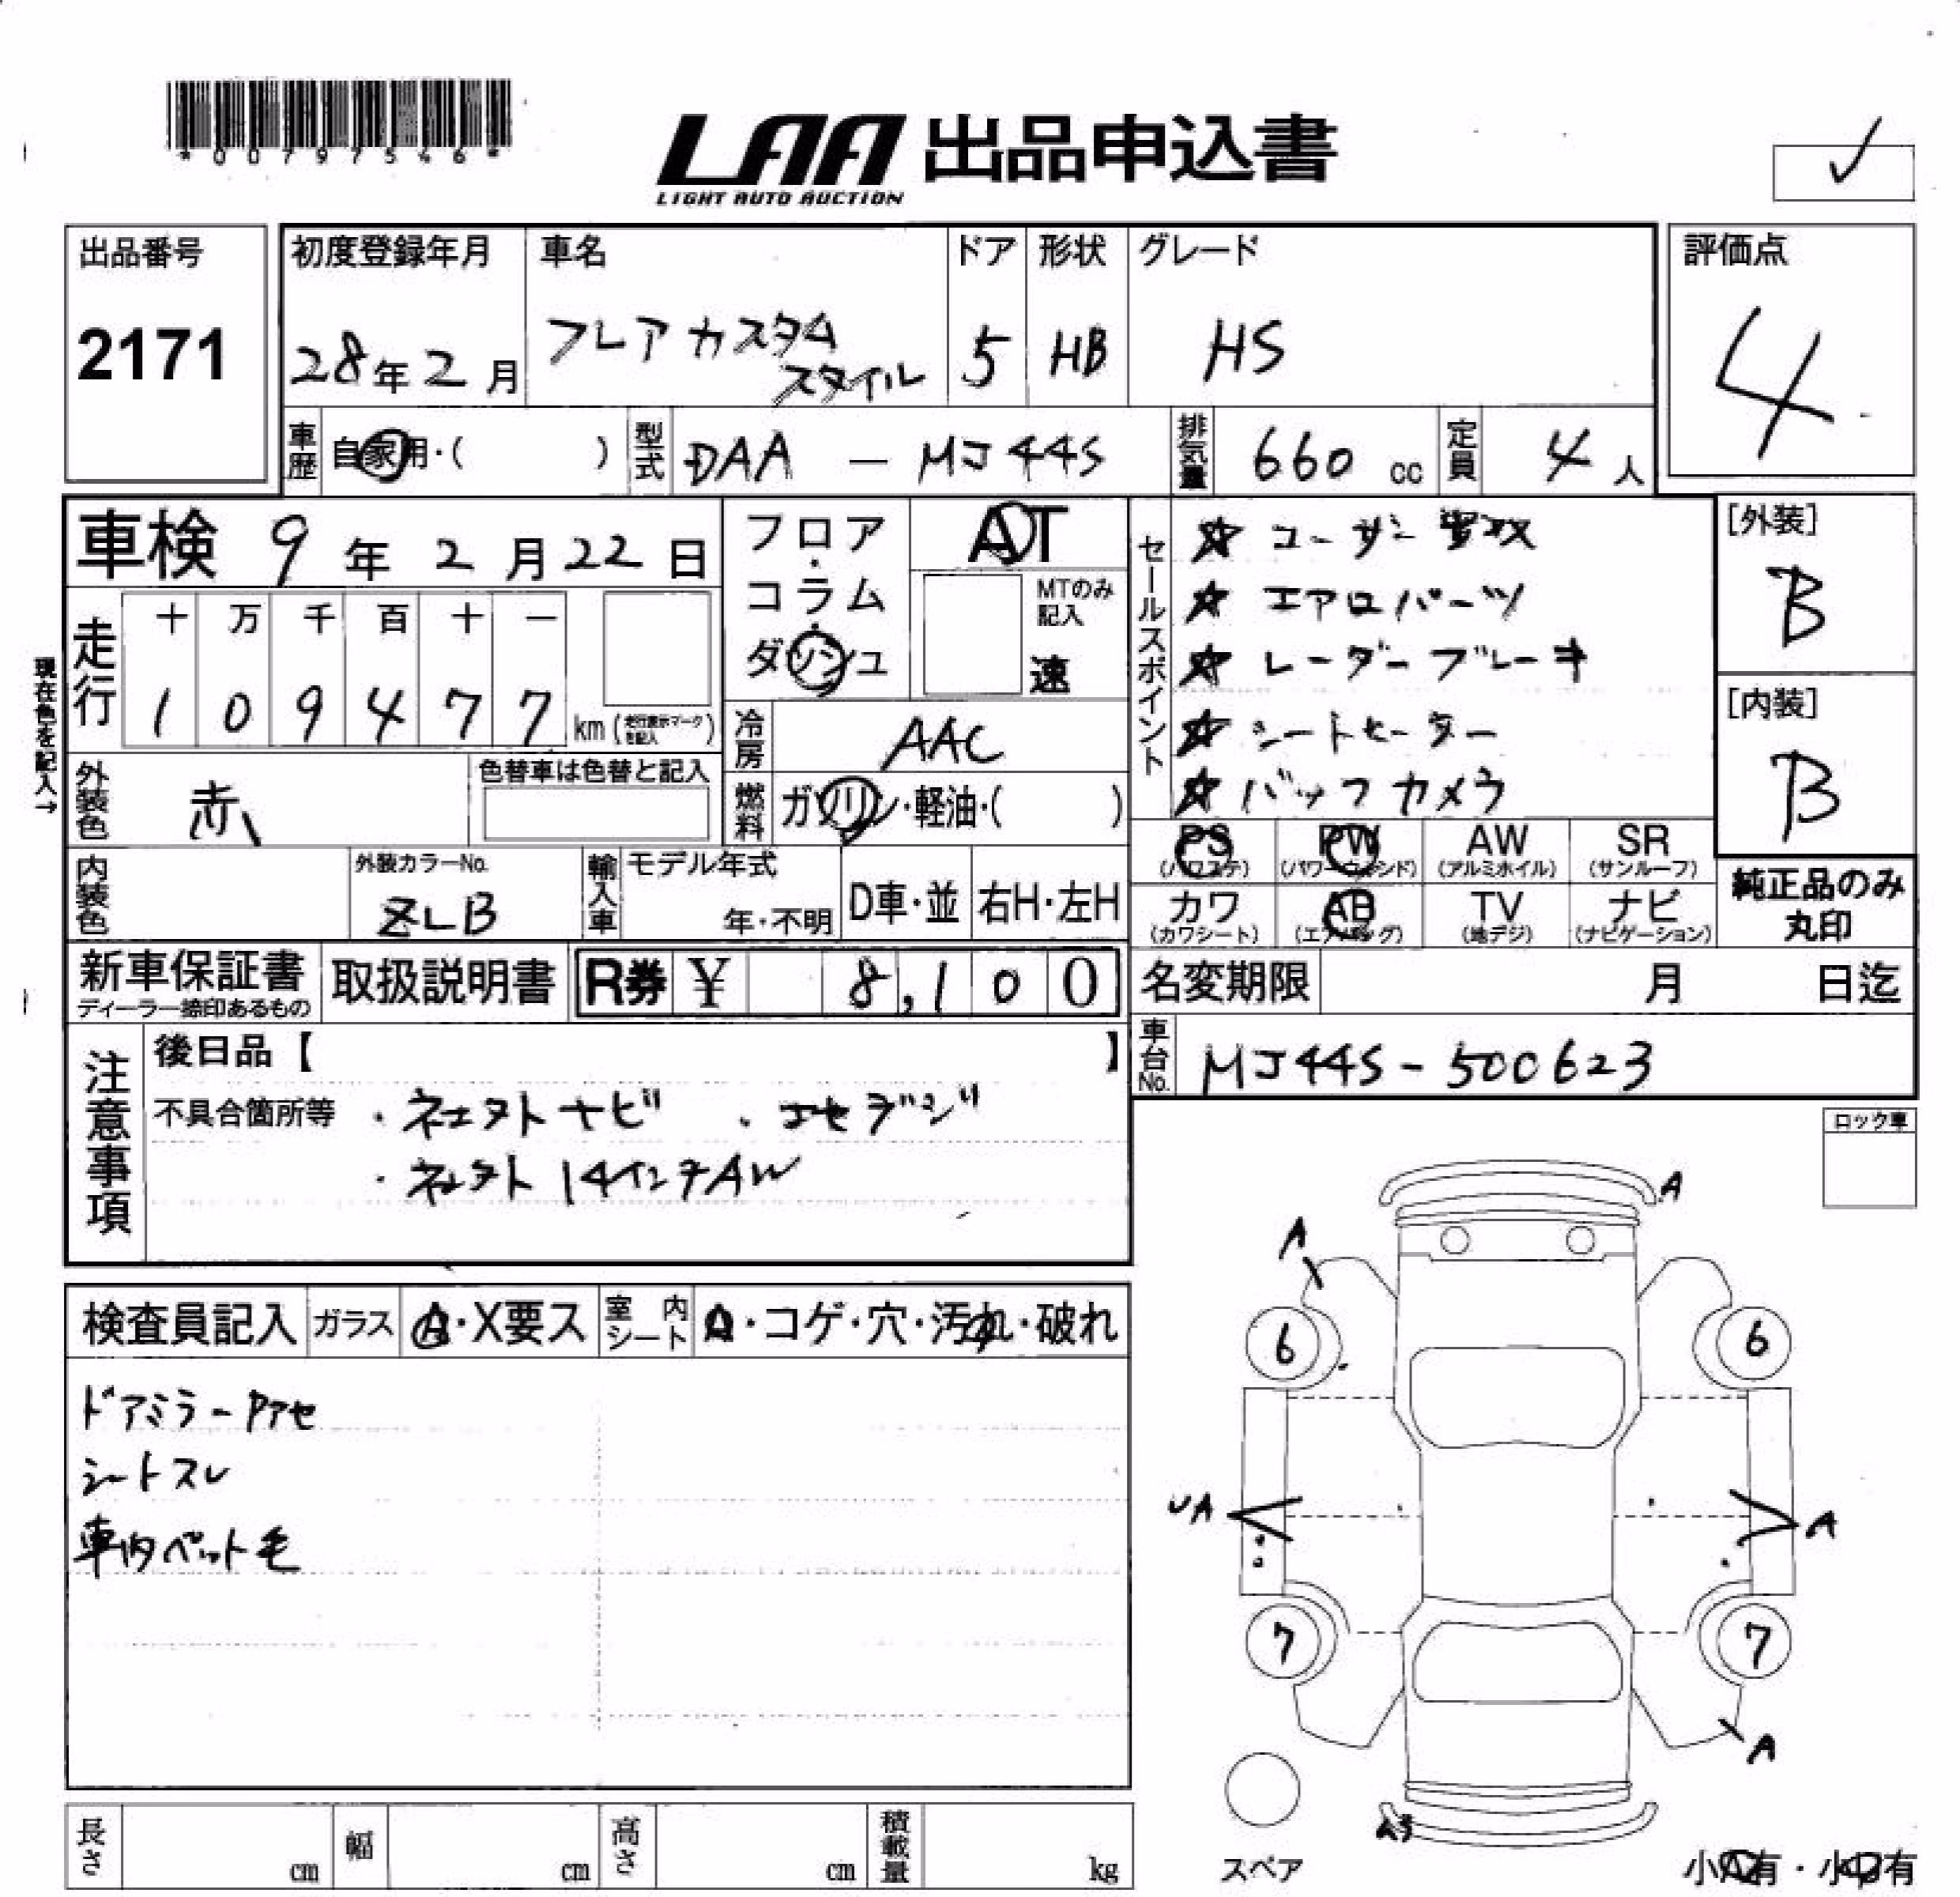 *00797546*
LAA 出品申込書
LIGHT AUTO AUCTION
出品番号
2171
初度登録年月
28年2月
車名
フレア カスタム
スタイル
ドア
5
形状
HB
グレード
HS
評価点
4
車歴
自家用・( )
型式
DAA - MJ44S
排気量
660 cc
定員
4人
車検 9年2月22日
フロア
・
コラム
・
ダッシュ
AT
MTのみ
記入
速
セールスポイント
☆ ユーザー買取
☆ エアロパーツ
☆ レーダーブレーキ
☆ シートヒーター
☆ バックカメラ
[外装]
B
[内装]
B
現在色を記入→
走行
十 万 千 百 十 一
1 0 9 4 7 7
km (走行表示マークを記入)
冷房
AAC
外装色
赤
色替車は色替と記入
燃料
ガソリン・軽油・( )
PS
(パワステ)
PW
(パワーウィンド)
AW
(アルミホイル)
SR
(サンルーフ)
内装色
外装カラーNo.
ZLB
輸入車
モデル年式
年・不明
D車・並
右H・左H
カワ
(カワシート)
AB
(エアバッグ)
TV
(地デジ)
ナビ
(ナビゲーション)
純正品のみ
丸印
新車保証書
ディーラー捺印あるもの
取扱説明書
R券 ¥ 8,100
名変期限 月 日迄
注意事項
後日品【 】
車台No.
MJ44S-500623
不具合箇所等 ・ネェクトナビ ・エセグジ
・ネェクト 14インチAW
ロック車
検査員記入
ガラス
A・X要ス
室内シート
A・コゲ・穴・汚れ・破れ
ドアミラーPアセ
シートスレ
車内ペット毛
A
A
6
6
UA
A
7
7
A
スペア
小A有・小U有
長さ cm
幅 cm
高さ cm
積載量 kg